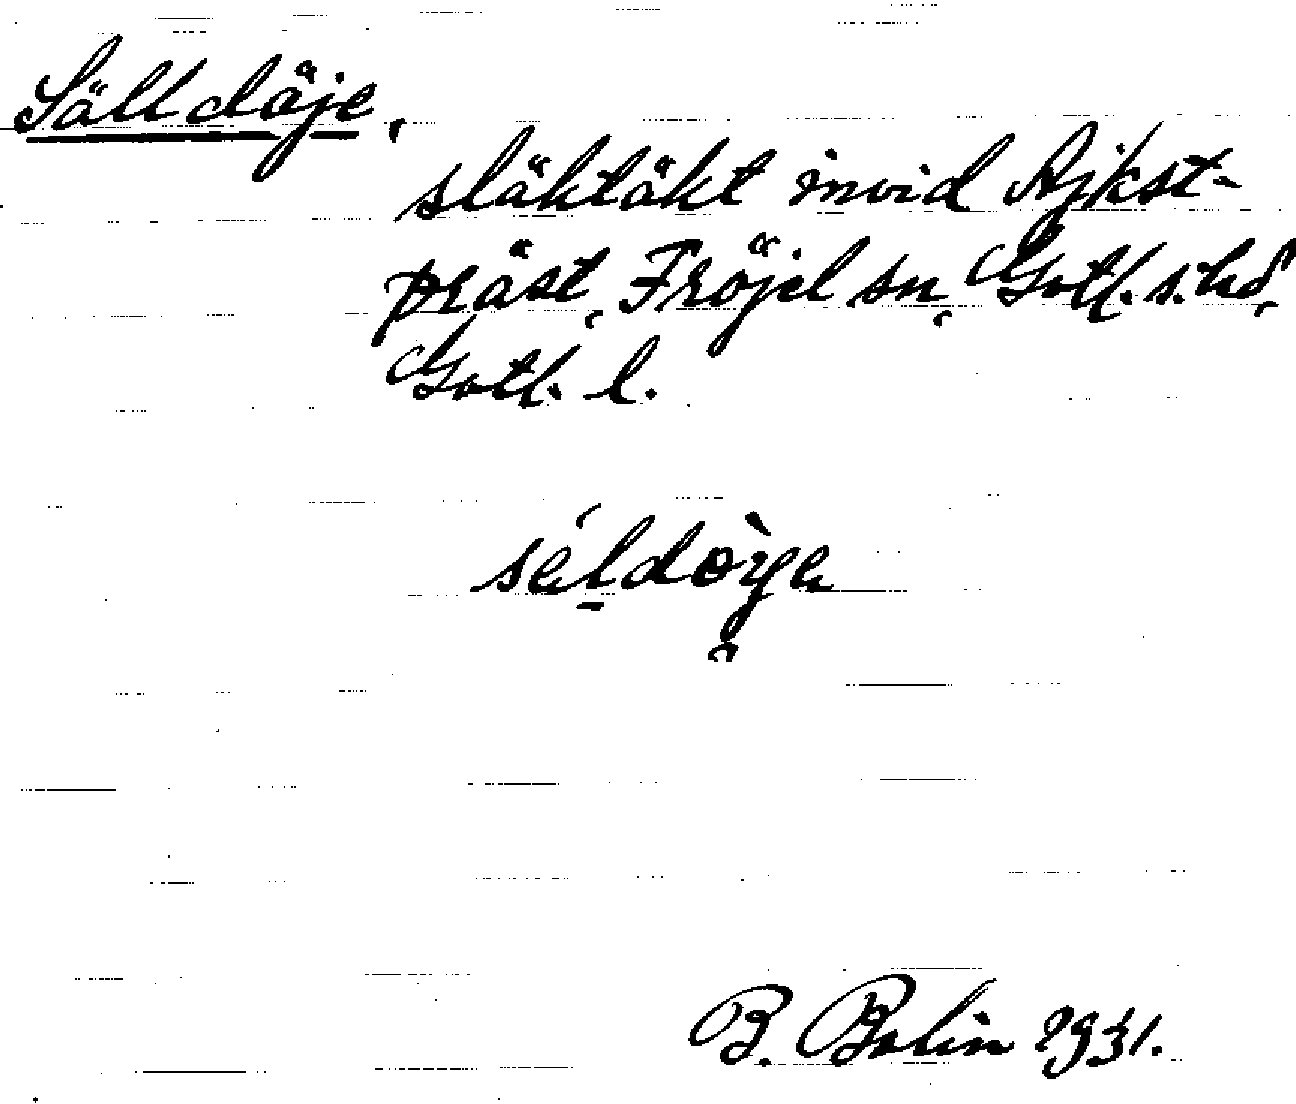 Sälldäje,
släktäkt invid Ajkst-
präst, Fröjel sn, Gotl. s. hd,
Gotl. l.
B. Bolin 1931.